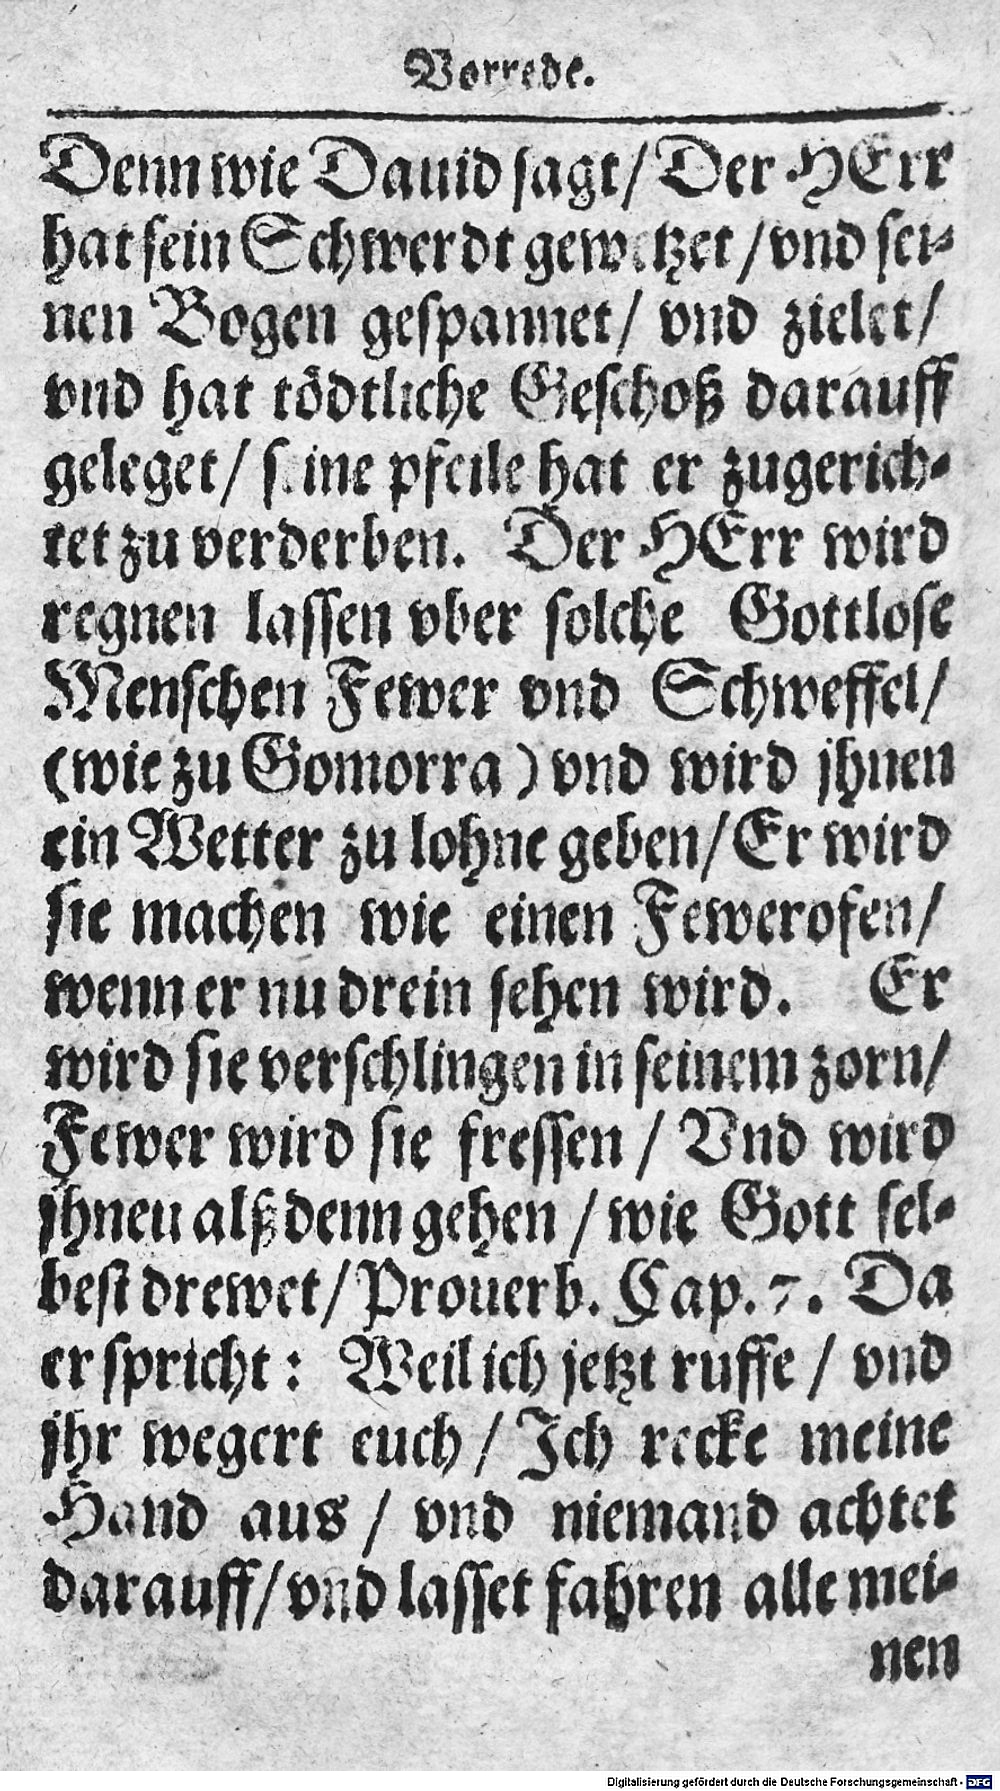 Vorrede.
Denn wie Dauid sagt/ Der HErr
hat sein Schwerdt gewetzet /vnd sei-
nen Bogen gespannet/ vnd zielet/
vnd hat tödtliche Geschoß darauff
geleget/ seine pfeile hat er zugerich-
tet zu verderben. Der HErr wird
regnen lassen vber solche Gottlose
Menschen Fewer vnd Schweffel/
(wie zu Gomorra) vnd wird jhnen
ein Wetter zu lohne geben/ Er wird
sie machen wie einen Fewerofen/
wenn er nu drein sehen wird. Er
wird sie verschlingen in seinem zorn/
Fewer wird sie fressen / Vnd wird
jhnen alß denn gehen / wie Gott sel-
best drewet/ Prouerb. Cap. 7. Da
er spricht: Weil ich jetzt ruffe / vnd
jhr wegert euch / Ich recke meine
Hand aus / vnd niemand achtet
darauff/ vnd lasset fahren alle mei-
nen
Digitalisierung gefördert durch die Deutsche Forschungsgemeinschaft - DFG